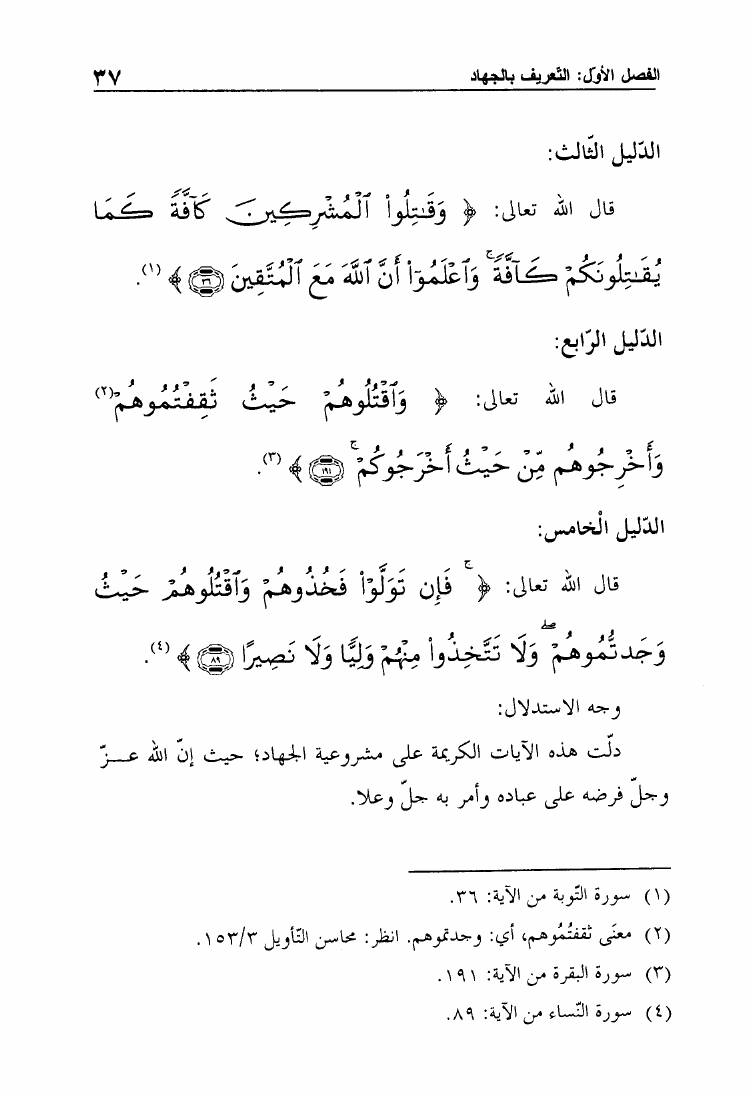 الفصل الأوّل: التّعريف بالجهاد ٣٧
الدّليل الثّالث:
قال الله تعالى: ﴿ وَقَـٰتِلُوا۟ ٱلْمُشْرِكِينَ كَآفَّةً كَمَا
يُقَـٰتِلُونَكُمْ كَآفَّةً ۚ وَٱعْلَمُوٓا۟ أَنَّ ٱللَّهَ مَعَ ٱلْمُتَّقِينَ ٣٦ ﴾ (١).
الدّليل الرّابع:
قال الله تعالى: ﴿ وَٱقْتُلُوهُمْ حَيْثُ ثَقِفْتُمُوهُمْ (٢)
وَأَخْرِجُوهُم مِّنْ حَيْثُ أَخْرَجُوكُمْ ۚ ١٩١ ﴾ (٣).
الدّليل الْخامس:
قال الله تعالى: ﴿ ۚ فَإِن تَوَلَّوْا۟ فَخُذُوهُمْ وَٱقْتُلُوهُمْ حَيْثُ
وَجَدتُّمُوهُمْ ۖ وَلَا تَتَّخِذُوا۟ مِنْهُمْ وَلِيًّا وَلَا نَصِيرًا ٨٩ ﴾ (٤).
وجه الاستدلال:
دلّت هذه الآيات الكريمة على مشروعية الجهاد؛ حيث إنّ الله عـــزّ
وجلّ فرضه على عباده وأمر به جلّ وعلا.
(١) سورة التّوبة من الآية: ٣٦.
(٢) معنَى ثقفتُمُوهم، أي: وجدتموهم. انظر: محاسن التّأويل ١٥٣/٣.
(٣) سورة البقرة من الآية: ١٩١.
(٤) سورة النّساء من الآية: ٨٩.